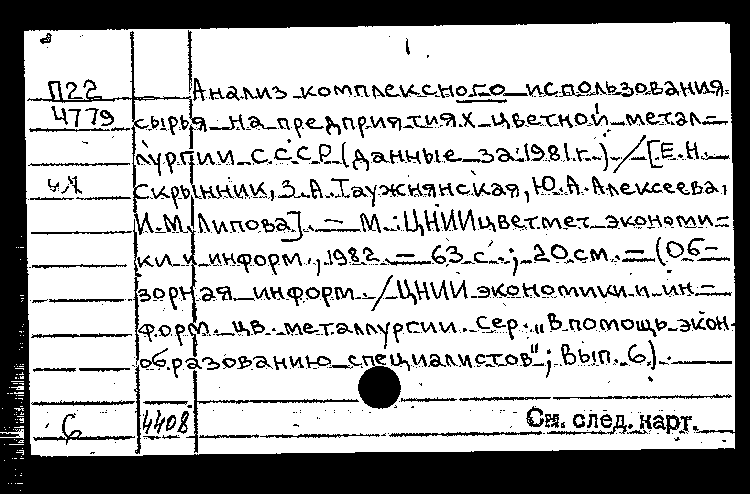 1.
П22 Анализ комплексного использования
4779 сырья на предприятиях цветной метал-
лургии СССР (данные за 1981 г.) / [Е.Н.
Скрынник, З.А. Таужнянская, Ю.А. Алексеева,
И.М. Липова]. — М.: ЦНИИцветмет экономи-
ки и информ., 1982. — 63 с.; 20 см. — (Об-
зорная информ. / ЦНИИ экономики и ин-
форм. цв. металлургии. Сер. „В помощь экон.
образованию специалистов"; Вып. 6).
6 4408 См. след. карт.